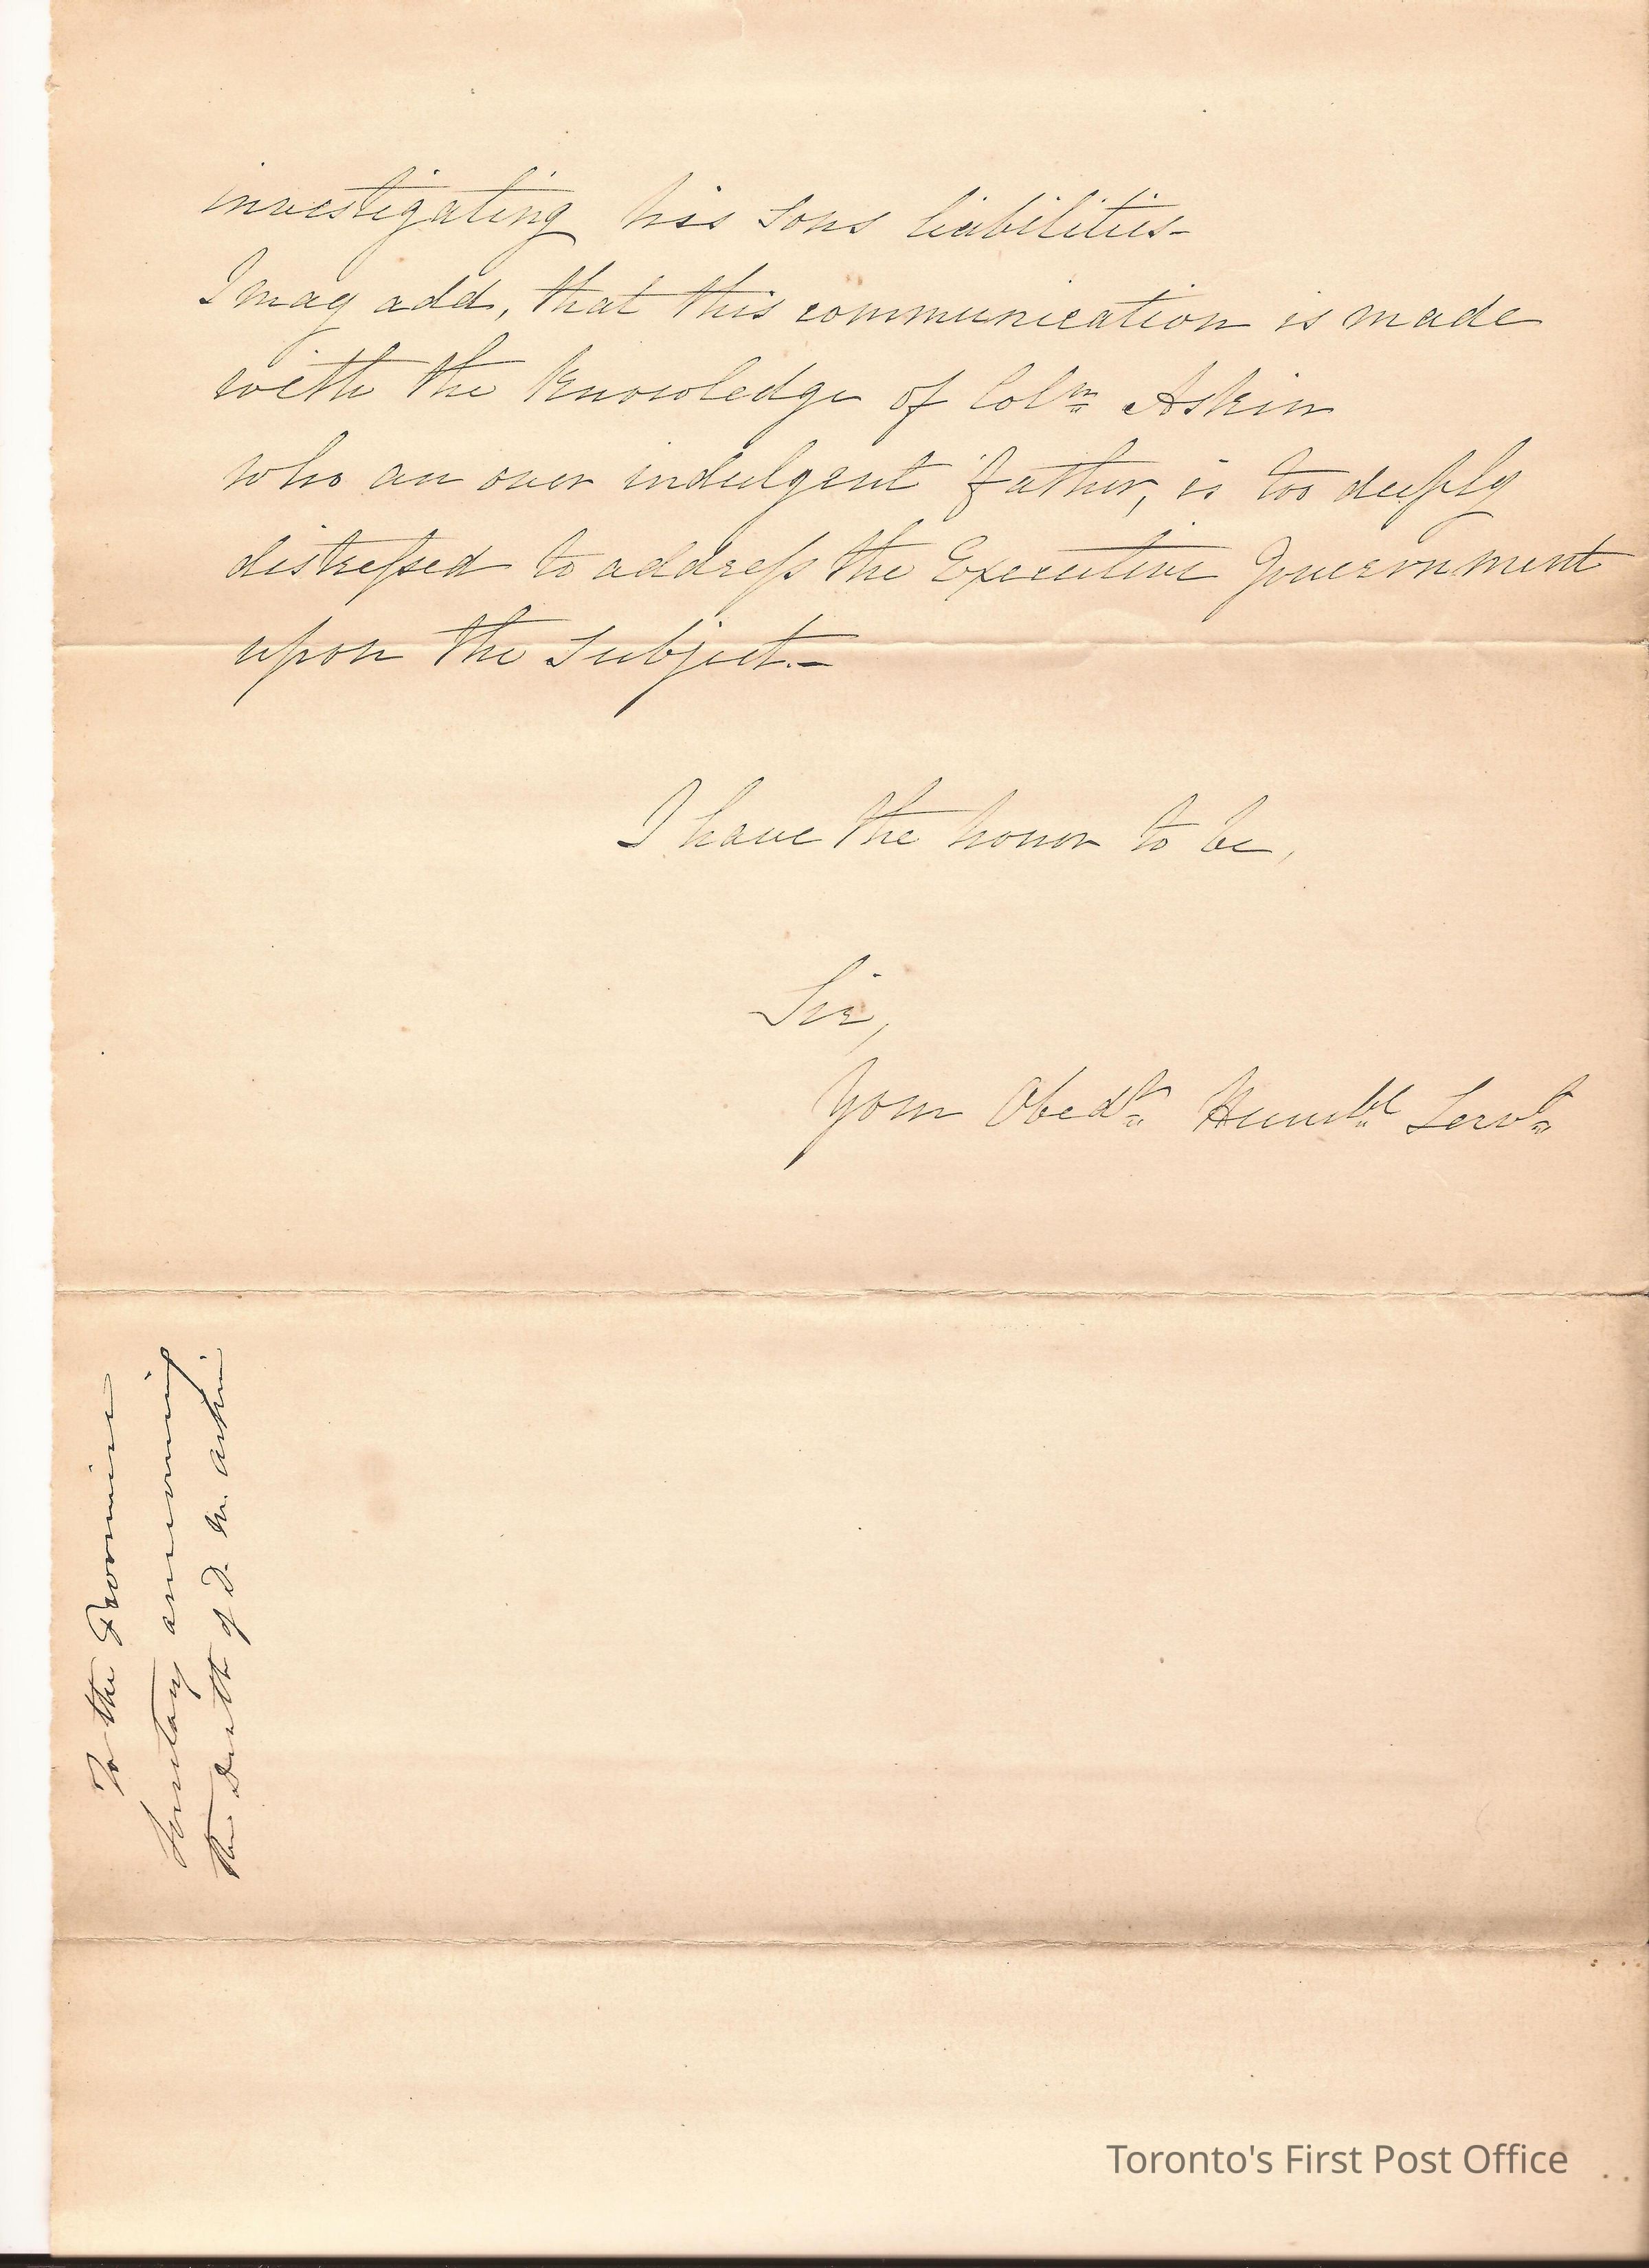 investigating his sons liabilities-
I may add, that this communication is made
with the Knowledge of Colm Askin
who an over indulgent father, is too deeply
distressed to address the Executive Government
upon the Subject.-
I have the honor to be,
Sir,
Your Obedt Humbl Servt
To the Provincial
Secretary announcing
the Death of D. M. Askin
Toronto's First Post Office